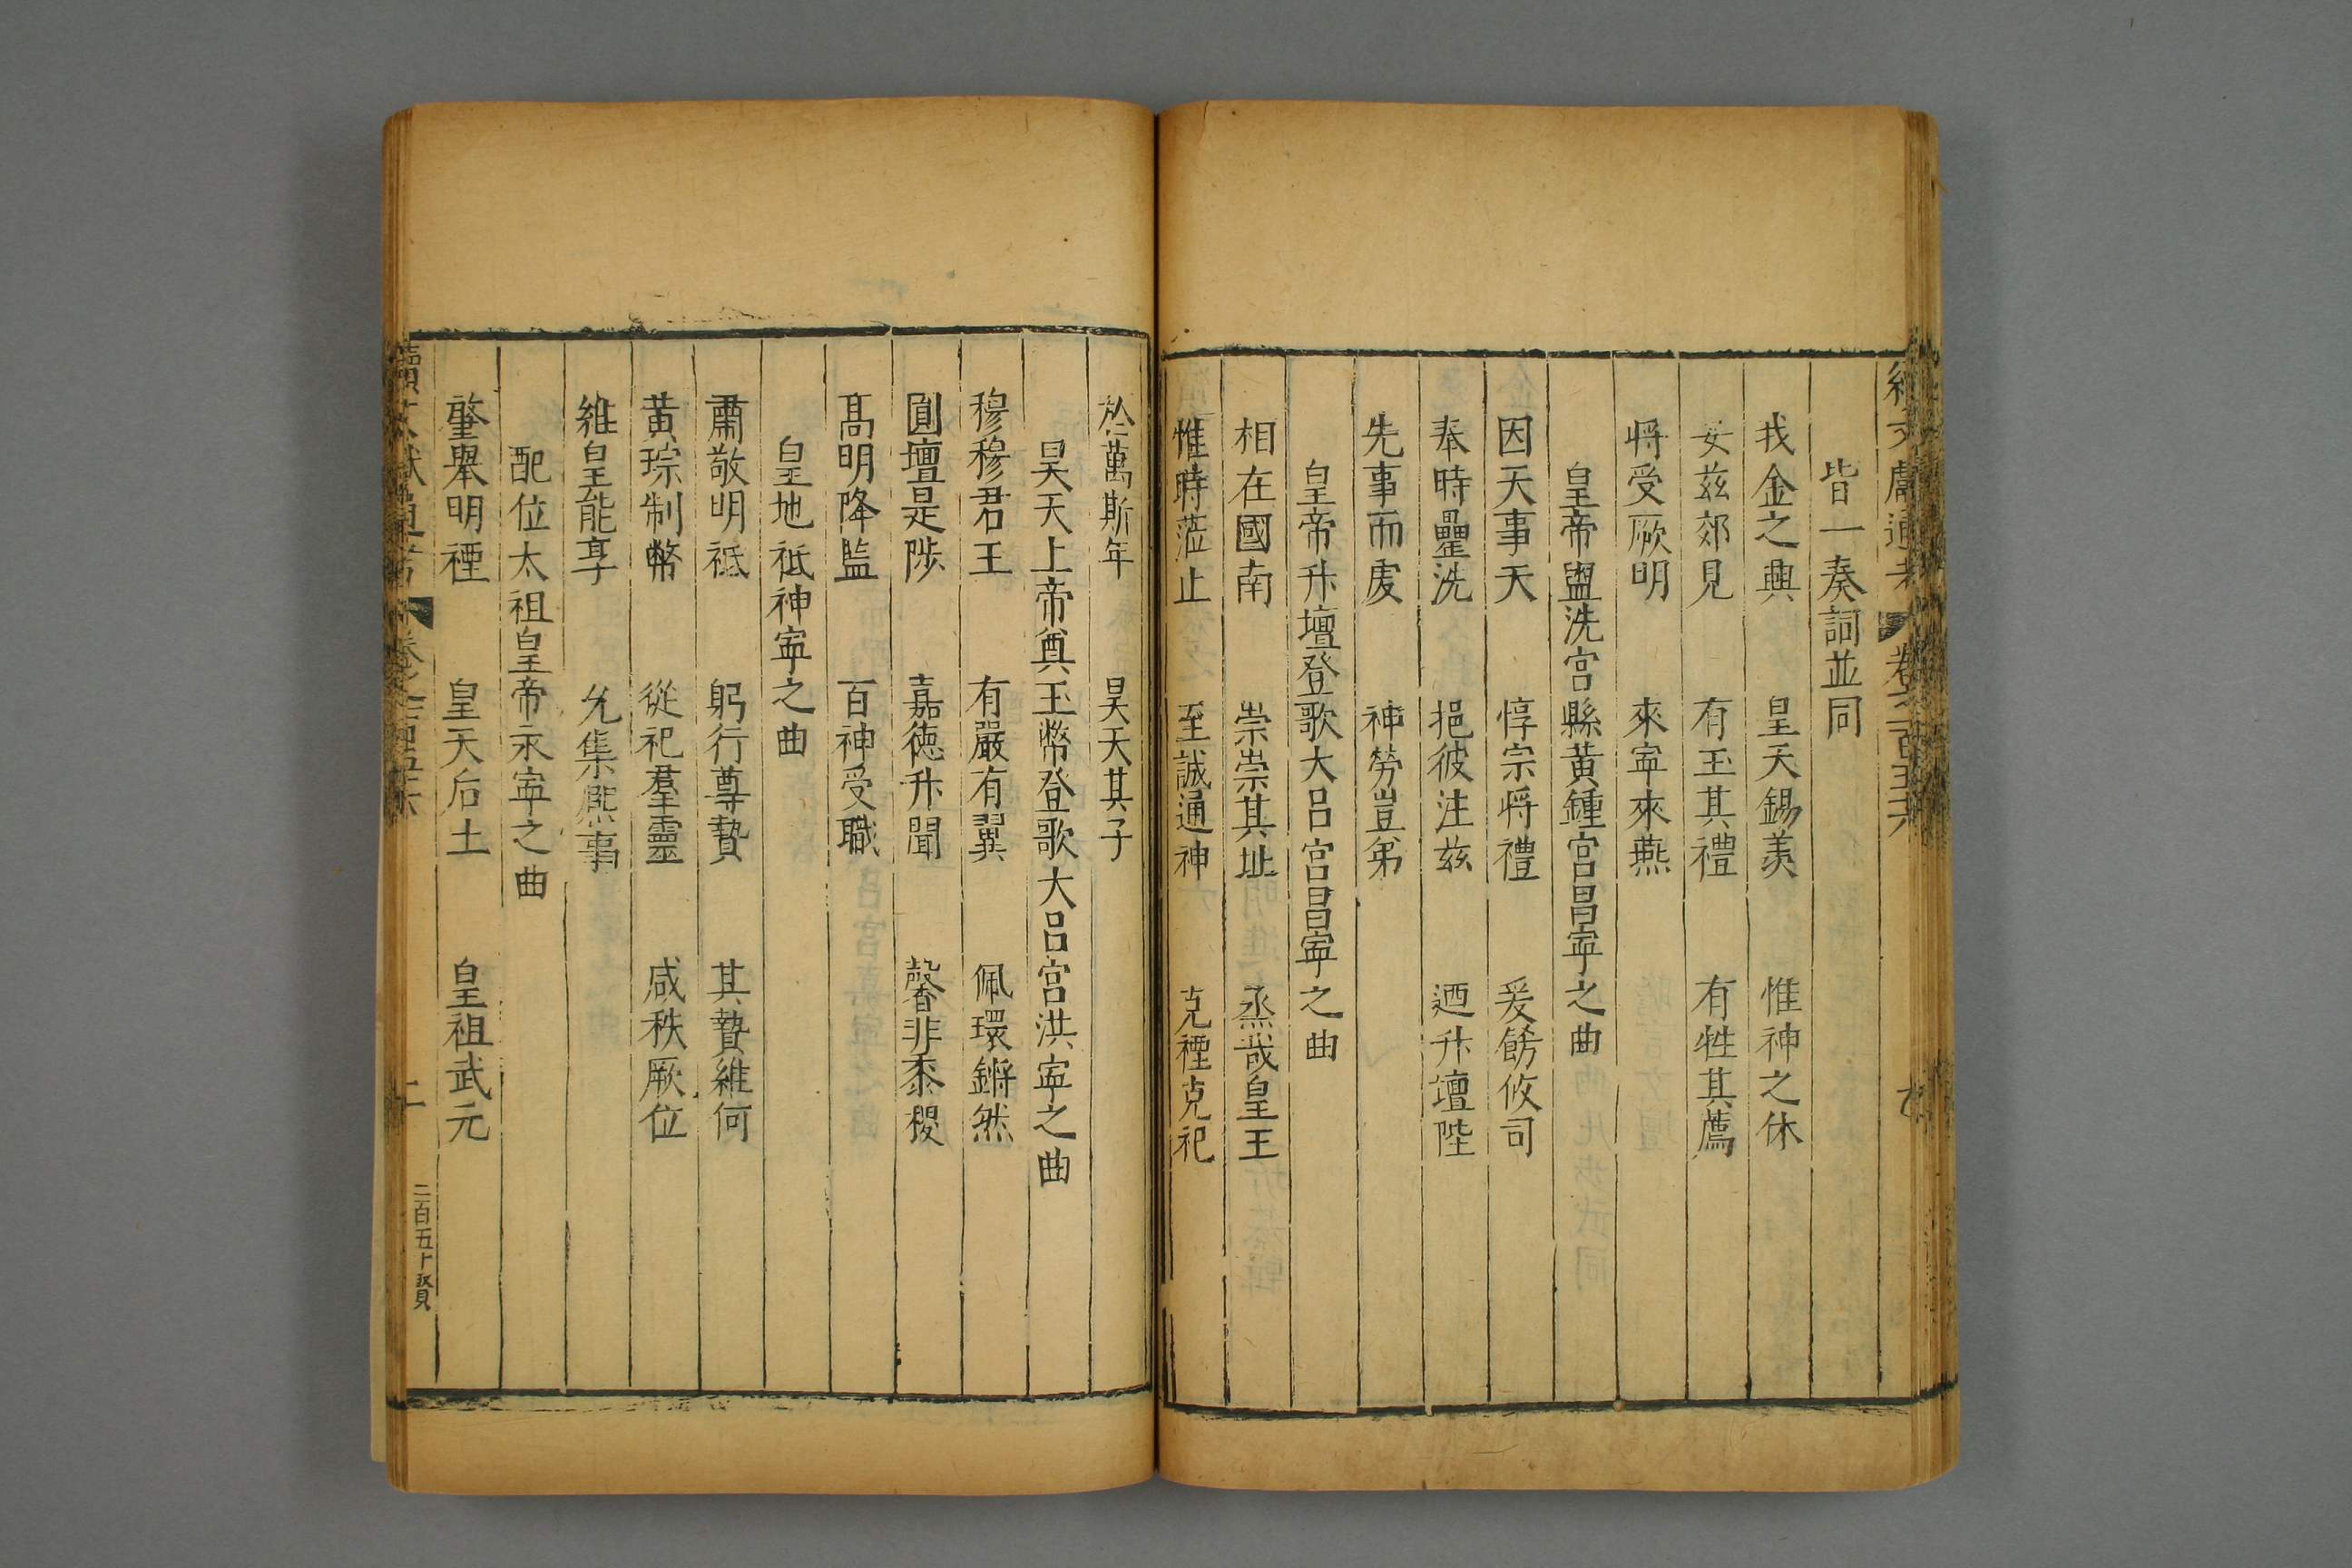 皆一奏詞並同
我金之興　皇天錫羨　惟神之休
妥兹郊見　有玉其禮　有牲其薦
将受厥明　來寧來燕
皇帝盥洗宮縣黃鍾宮昌寧之曲
因天事天　惇宗将禮　爰飭攸司
奉時罍洗　挹彼注兹　迺升壇陛
先事而䖏　神勞豈弟
皇帝升壇登歌大吕宮昌寧之曲
相在國南　崇崇其址　烝哉皇王
惟時蒞止　至誠通神　克禋克祀
於萬斯年　昊天其子
昊天上帝奠玉幣登歌大吕宮洪寧之曲
穆穆君王　有嚴有翼　佩環鏘然
圓壇是陟　嘉德升聞　馨非黍稷
髙明降監　百神受職
皇地祗神寧之曲
肅敬明祗　躬行尊贄　其贄維何
黃琮制幣　從祀羣靈　咸秩厥位
維皇能享　允集熙事
配位太祖皇帝永寧之曲
肇舉明禋　皇天后土　皇祖武元
二百五十賢